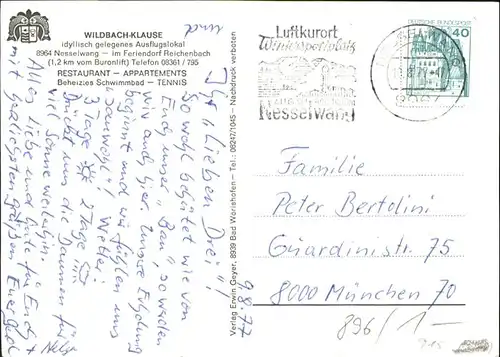 WILDBACH-KLAUSE
idyllisch gelegenes Ausflugslokal
8964 Nesselwang — im Feriendorf Reichenbach
(1,2 km vom Buronlift) Telefon 08361 / 795
RESTAURANT — APPARTEMENTS
Beheiztes Schwimmbad — TENNIS
9.8.77
Ihr „Lieben Drei"!
So wohl behütet wie von
Eurem „Bau", so werden
wir auch hier. Unsere
beginnt und wir fühlen uns
„sauwohl"! Wetter:
3 Tage 2 Tage
Drückt uns die Daumen für
viel Sonne weiterhin.
Alles Liebe und Gute für Euch
mit herzlichsten Grüßen
und
Verlag Erwin Geyer, 8939 Bad Wörishofen - Tel.: 08247/1045 - Nachdruck verboten
Luftkurort
Wintersportplatz
Nesselwang
DEUTSCHE BUNDESPOST
40
Familie
Peter Bertolini
Guardinistr. 75
8000 München 70
896/1-